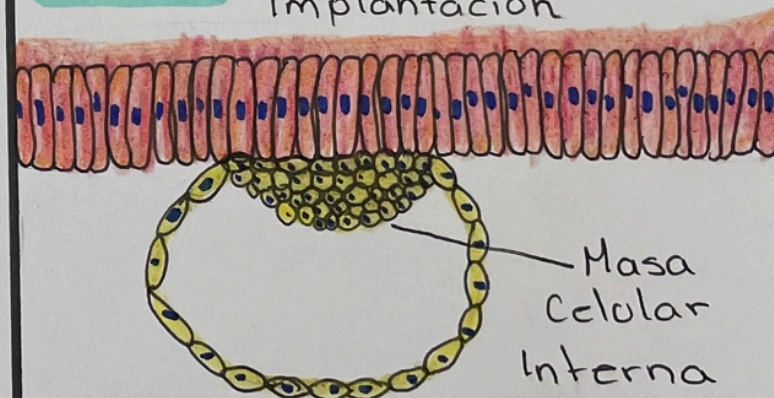 Implantación
Masa
Celular
Interna